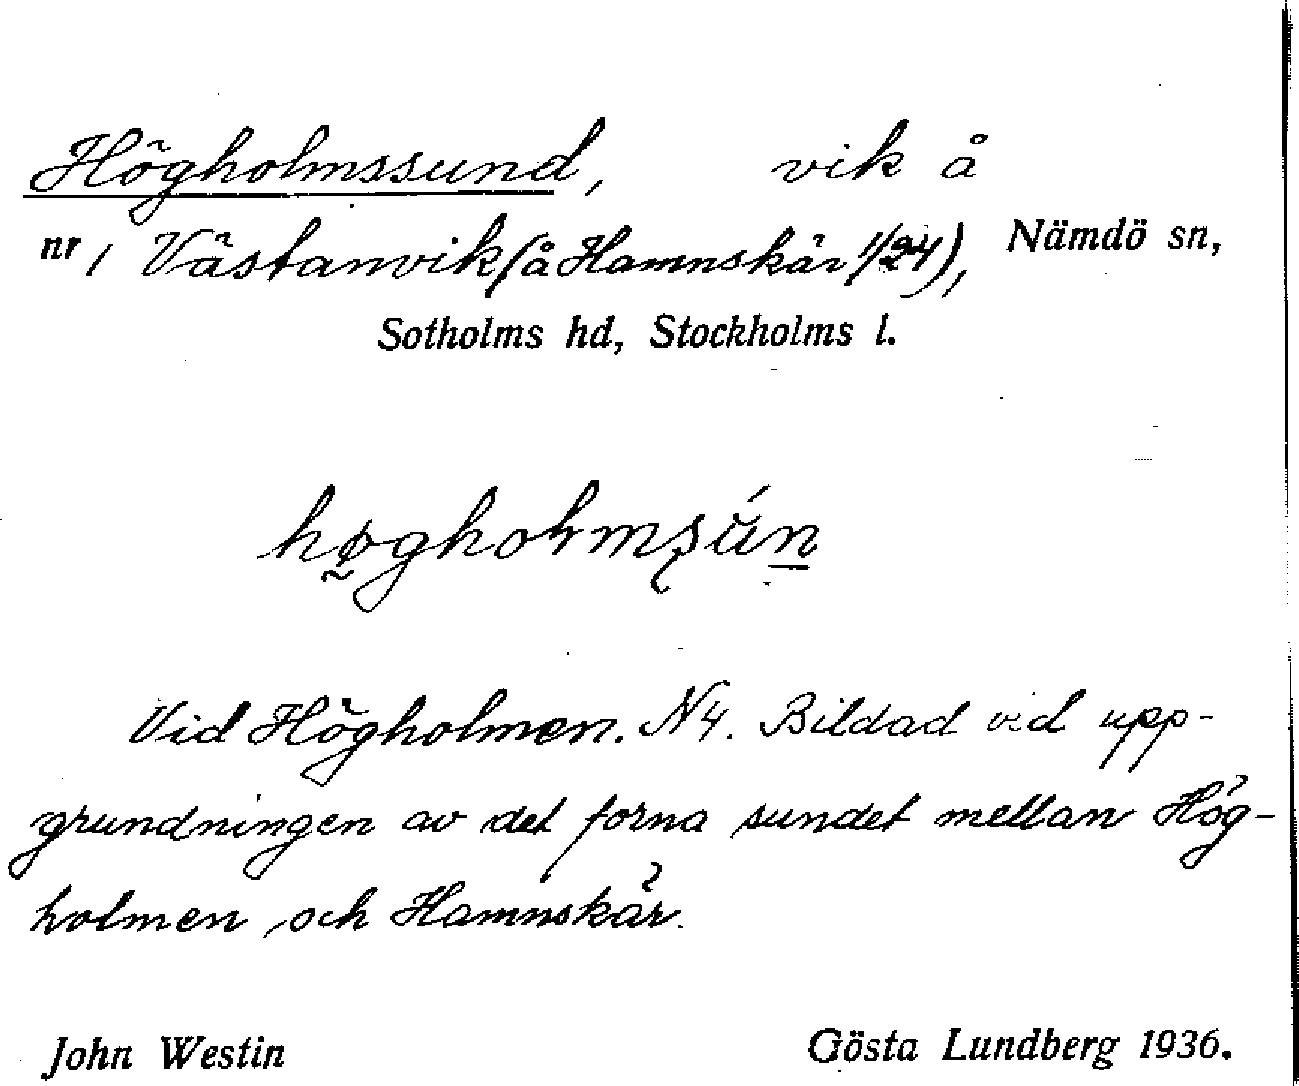 Högholmssund, vik å
nr 1 Västanvik (å Hamnskär 1/24), Nämdö sn,
Sotholms hd, Stockholms l.
høgholmsún
Vid Högholmen. N4. Bildad vid upp-
grundningen av det forna sundet mellan Hög-
holmen och Hamnskär.
John Westin Gösta Lundberg 1936.